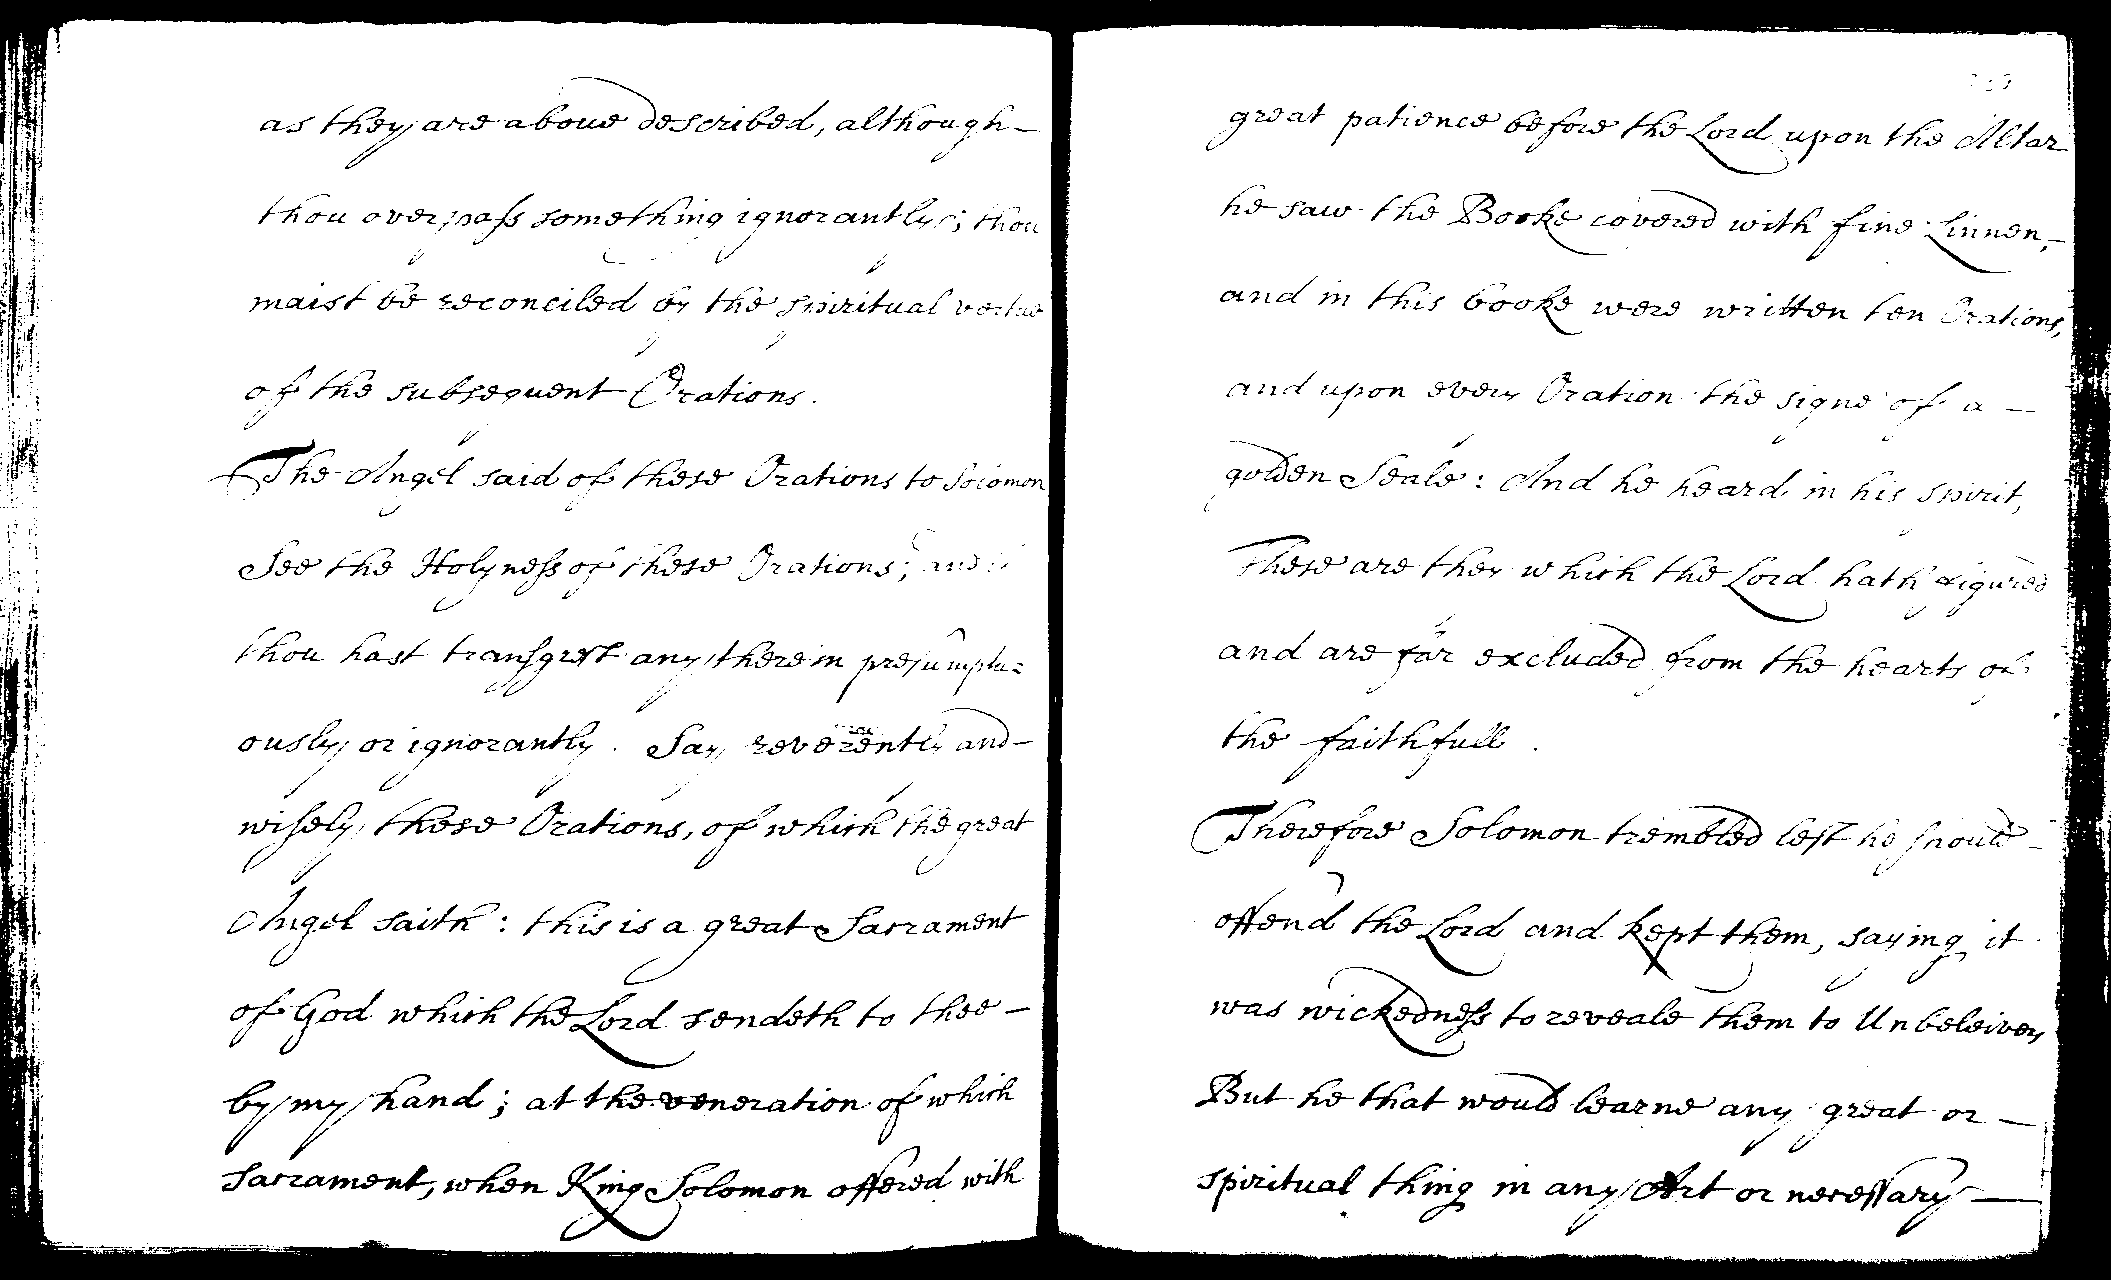 as they are aboue described, although-
thou overpass something ignorantly; thou
maist be reconciled by the spiritual vertue
of the subsequent Orations.
The Angel said of these Orations to Solomon
See the Holyness of these Orations; and if
thou hast transgrest any therein presumptu=
ously or ignorantly. Say reverently and-
wisely these Orations, of which the great
Angel saith: this is a great Sacrament
of God which the Lord sendeth to thee-
by my hand; at the veneration of which
sacrament, when King Solomon offered with
great patience before the Lord upon the Altar
he saw the Booke covered with fine Linnen,-
and in this booke were written ten Orations,
and upon every Oration the signe of a-
golden Seale: And he heard in his spirit,
These are they which the Lord hath figured
and are far excluded from the hearts of
the faithfull.
Therefore Solomon trembled lest he should-
offend the Lord and kept them, saying it
was wickedness to reveale them to Unbeleivers
But he that would learne any great or-
spiritual thing in any Art or necessary-